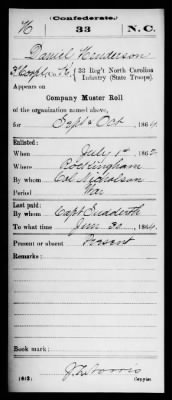 (Confederate.)
H 33 N.C.
Daniel Henderson
Corpl, Co. 33 Reg't North Carolina
Infantry (State Troops).
Appears on
Company Muster Roll
of the organization named above,
for Sept & Oct, 1864.
Enlisted:
When July 1st, 1862.
Where Rockingham
By whom Col Nicholson
Period War
Last paid:
By whom Capt
To what time June 30, 1864.
Present or absent Present
Remarks:
Book mark:
J. L. Norris
(642) Copyist.